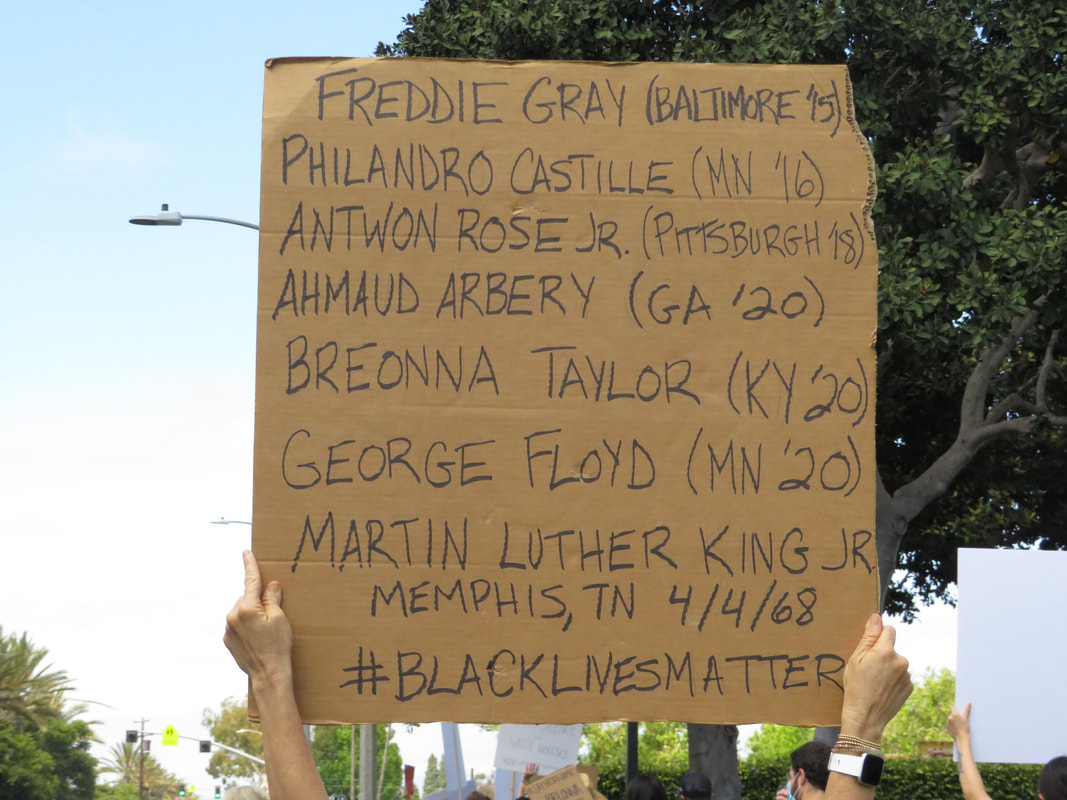 FREDDIE GRAY (BALTIMORE '15)
PHILANDRO CASTILLE (MN '16)
ANTWON ROSE JR. (PITTSBURGH '18)
AHMAUD ARBERY (GA '20)
BREONNA TAYLOR (KY '20)
GEORGE FLOYD (MN '20)
MARTIN LUTHER KING JR.
MEMPHIS, TN 4/4/68
#BLACKLIVESMATTER
WHITE VIOLENCE
BREONNA